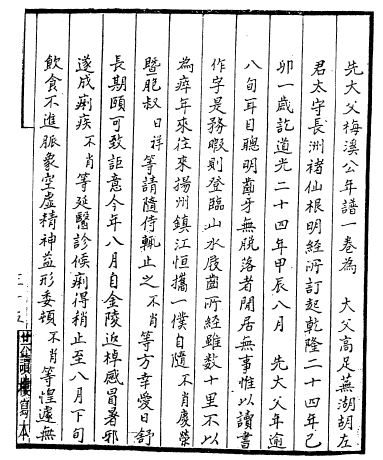 先大父梅溪公年譜一卷為　大父高足蕪湖胡左
君太守長洲禇仙根明經所訂起乾隆二十四年己
卯一歲訖道光二十四年甲辰八月　先大父年逾
八旬耳目聰明齒牙無脫落者閒居無事惟以讀書
作字是務暇則登臨山水屐齒所經雖數十里不以
為瘁年來往來揚州鎮江恒攜一僕自隨不肖慶榮
暨胞叔日祥等請隨侍輒止之不肖等方幸愛日舒
長期頤可致詎意今年八月自金陵返棹感冒暑邪
遂成痢疾不肖等延醫診候痢得稍止至八月下旬
飲食不進脈象空虛精神益形委頓不肖等惶遽無